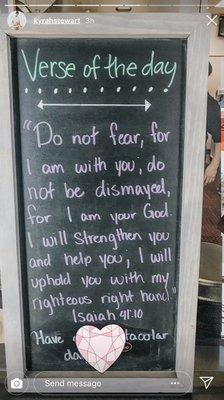 kyrahstewart 3h
Verse of the day
"Do not fear, for
I am with you, do
not be dismayed,
for I am your God.
I will strengthen you
and help you, I will
uphold you with my
righteous right hand"
Isaiah 41:10
Have tacular
da
Send message